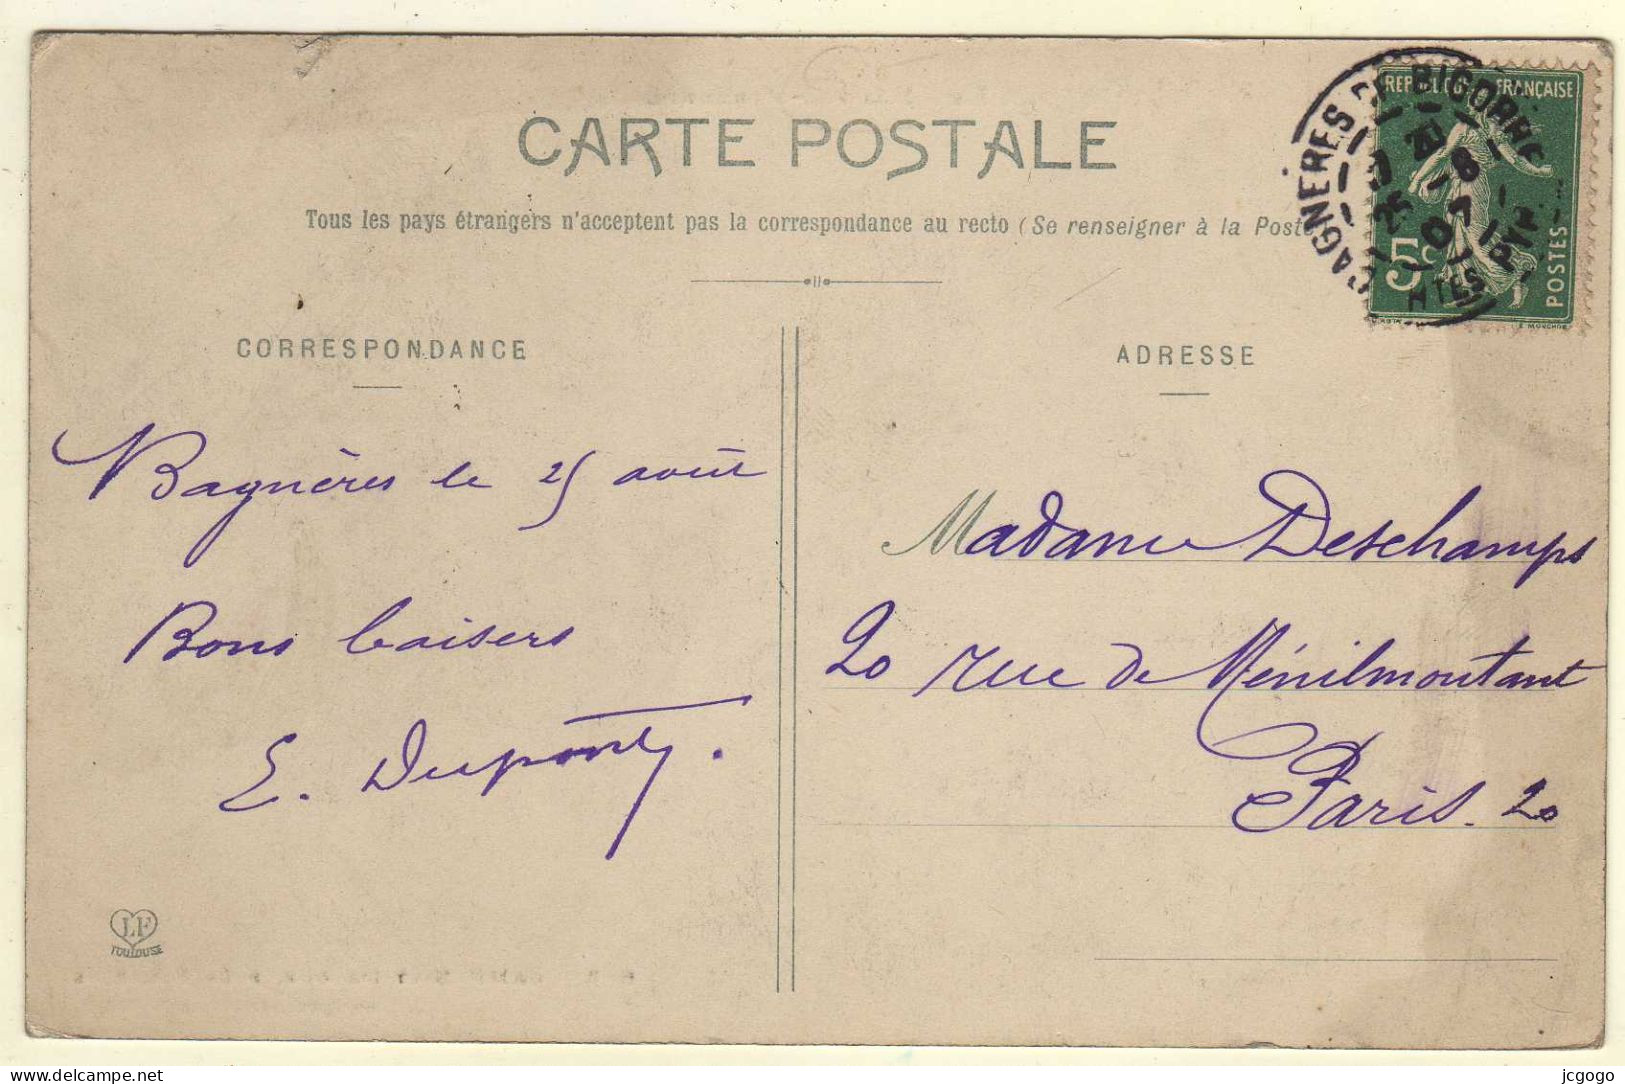 CARTE POSTALE
Tous les pays étrangers n'acceptent pas la correspondance au recto (Se renseigner à la Poste
CORRESPONDANCE
Bagnères le 25 août
Bons baisers
E. Dupont.
LF
TOULOUSE
BAGNERES DE BIGORRE
HTES PYR.
REPUBLIQUE FRANÇAISE
5c
POSTES
E. MOUCHON
ADRESSE
Madame Deschamps
20 rue de Ménilmontant
Paris. 20
delcampe.net
jcgogo